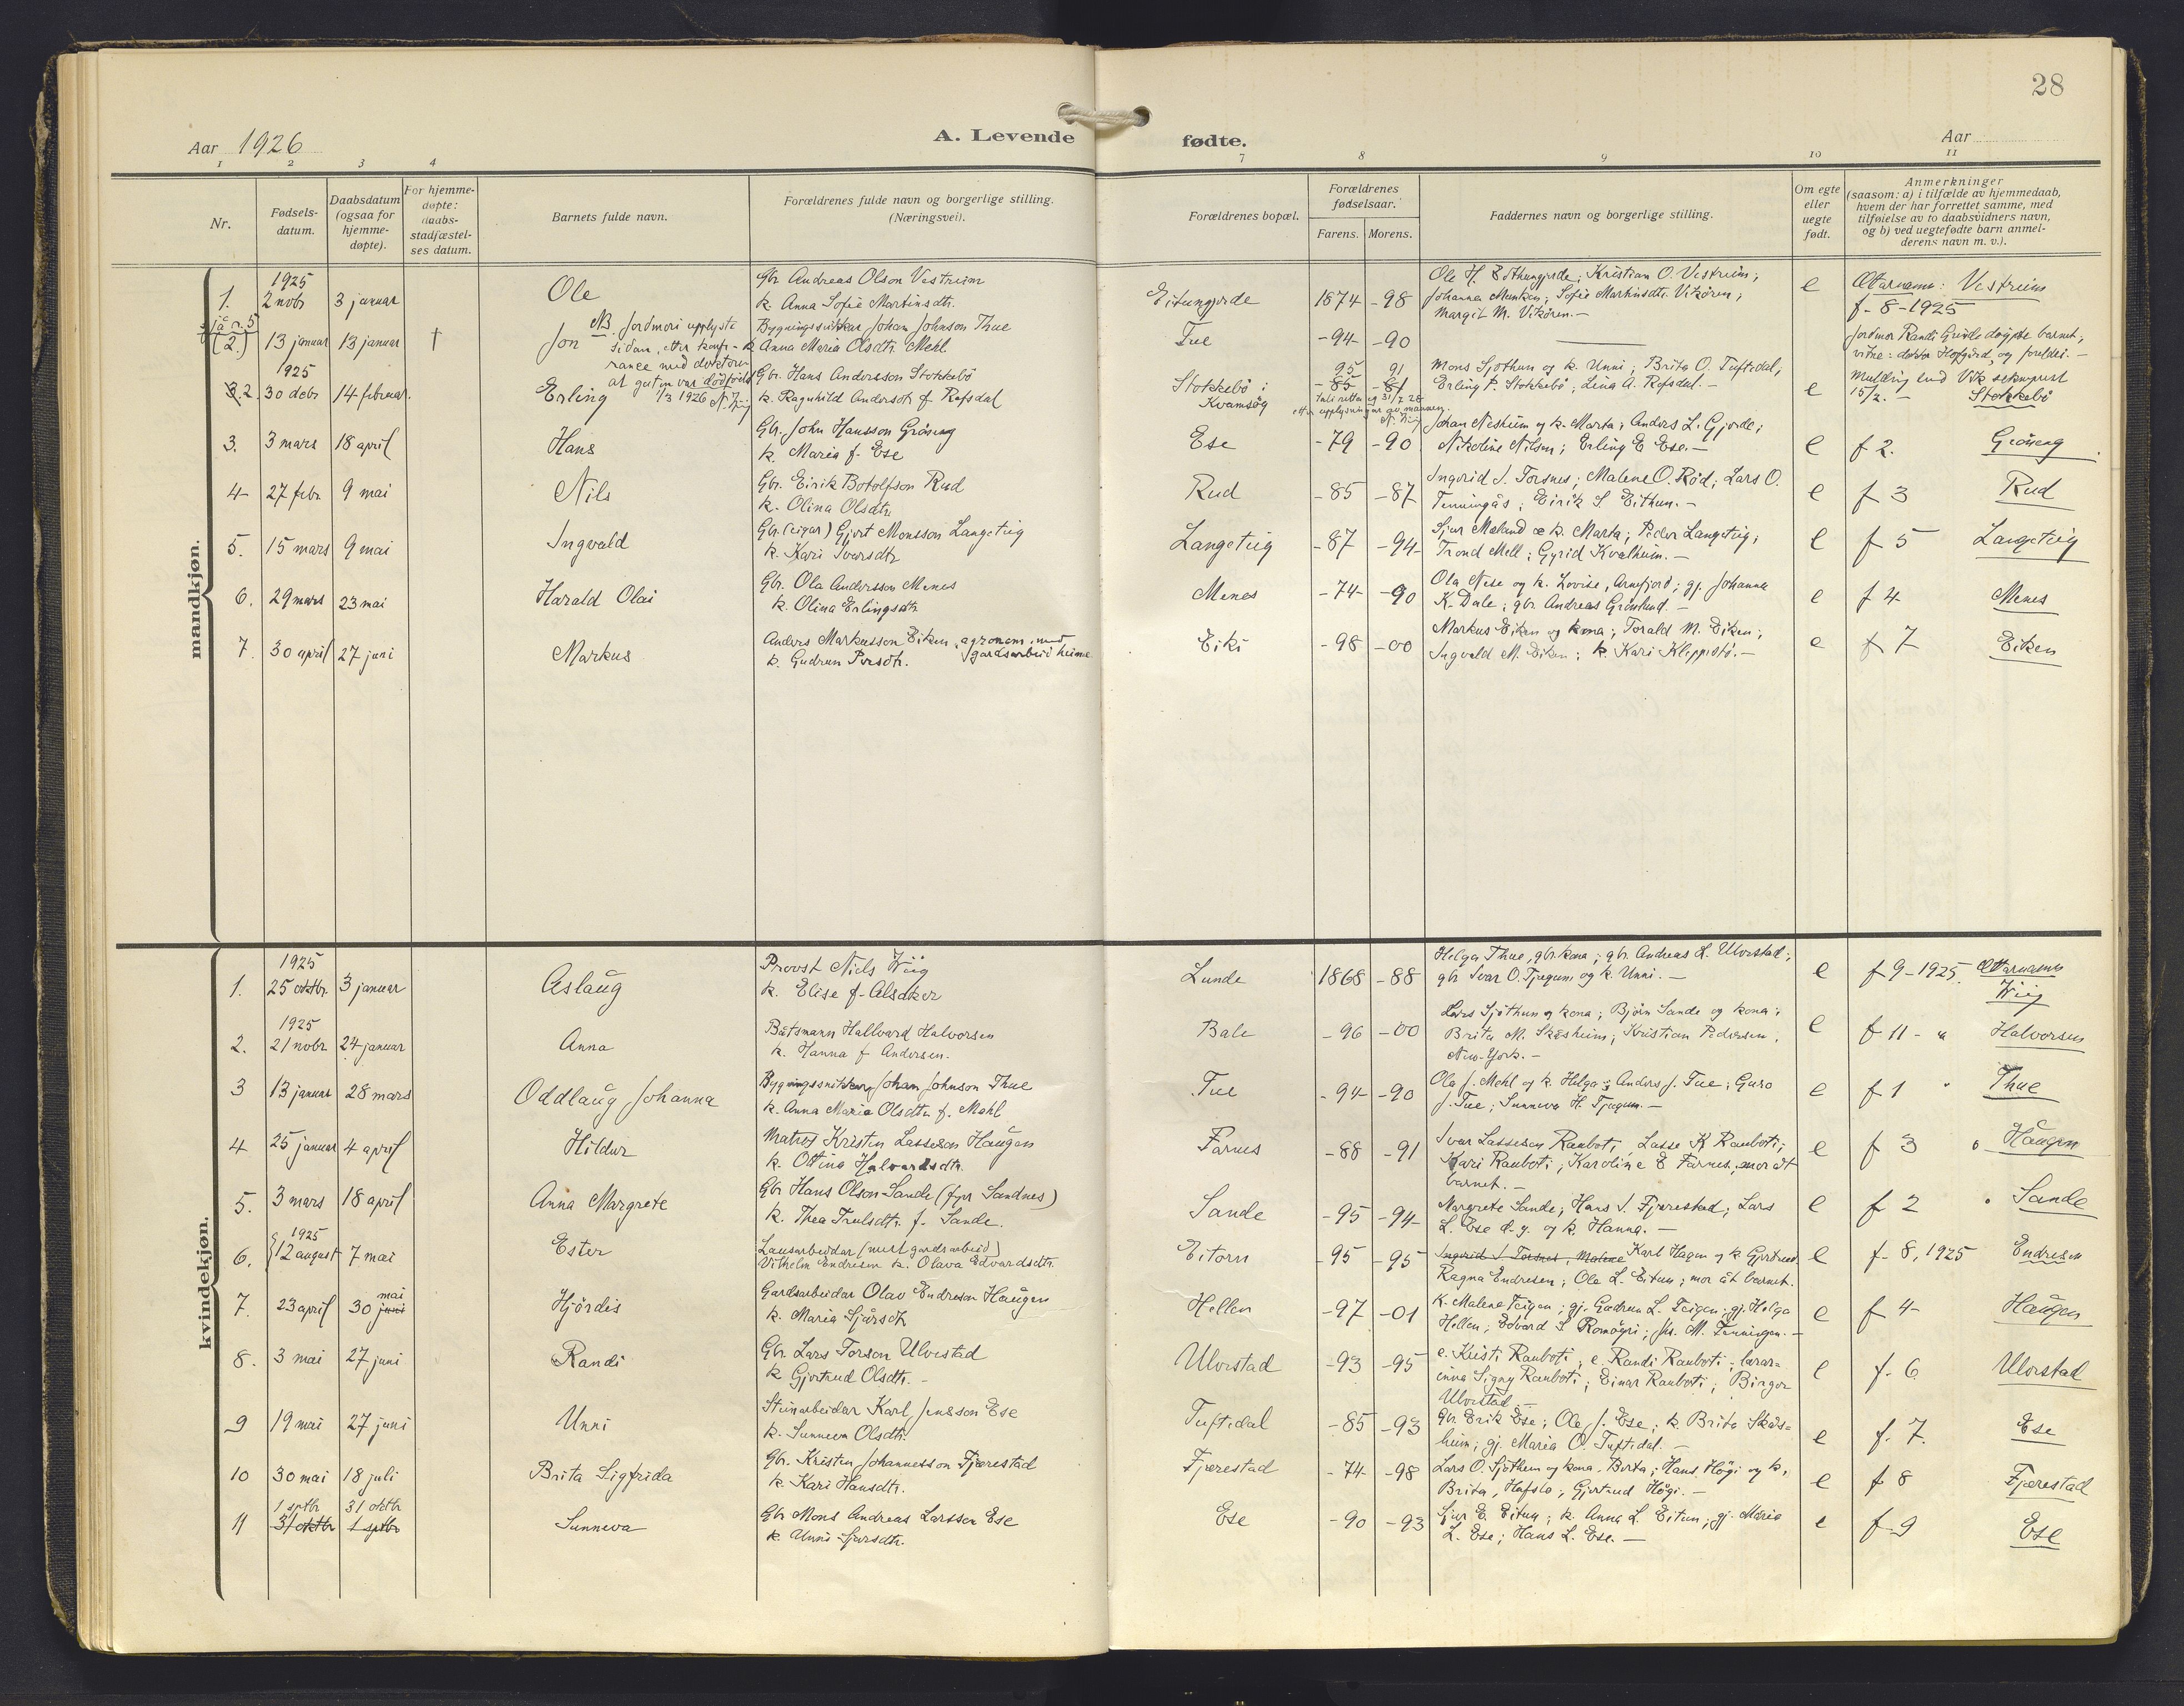 28
Aar 1926
A. Levende
fødte.
Aar
1 2 3 4 7 8 9 10 11
Nr.
Fødsels-
datum.
Daabsdatum
(ogsaa for
hjemme-
døpte).
For hjemme-
døpte:
daabs-
stadfæstel-
ses datum.
Barnets fulde navn.
Forældrenes fulde navn og borgerlige stilling.
(Næringsvei).
Forældrenes bopæl.
Forældrenes
fødselsaar.
Farens. Morens.
Faddernes navn og borgerlige stilling.
Om egte
eller
uegte
født.
Anmerkninger
(saasom: a) i tilfælde av hjemmedaab,
hvem der har forrettet samme, med
tilføielse av to daabsvidners navn,
og b) ved uegtefødte barn anmel-
derens navn m. v.).
mandkjøn.
1925
1. 2 nobr 3 januar Ole
Gbr Andreas Olson Vestreim
k. Anna Sofie Martinsdtr.
Eitungjerde 1874 -98
Ole H. Eithungjerde; Kristian O. Vestreim;
Johanna Munken; Sofie Martinsdtr. Vikören;
Margit M. Vikören.-
e Ættarnamn: Vestreim
f-8-1925
(2.) 13 januar 13 januar † Jon
NB. Jordmori upplyste
sidan, etter konfe-
ranse med doktoren
at guten var dødfødd
1/3 1926
Bygningssnikkar Johan Johnson Thue
k Anna Maria Olsdtr. Mehl
Tue -94 -90
Jordmor Randi Grinde döypte barnet;
vitne: doktor Hofgård, og foreldri.-
1925
3. 2. 30 debr 14 februar. Erling
Gbr. Hans Andersson Stokkebö
k. Ragnhild Andersdtr f. Refsdal
Stokkebö i
Kvamsöy
95 91
-85 -81
etter upplysningar av mannen.
Mons Sjøthun og k. Unni; Brita O. Tuftedal;
Erling P. Stokkebö; Lina A. Refsdal.-
e
15/2. - Stokkebö
3. 3 mars 18 april Hans
Gbr. John Hansson Gröneng
k. Maria f. Ese
Ese -79 -90
Johan Nesheim og k. Marta; Anders L. Gjerde;
Nikoline Nilsen; Erling E Ese.-
e f 2. Gröneng
4- 27 febr. 9 mai Nils
Gbr. Eirik Botolfson Rud
k. Olina Olsdtr.
Rud -85 -87
Ingerid S. Torsnes; Malene O. Röd; Lars O.
Tenningås; Eirik S. Eithun.-
e f 3 Rud
5. 15 mars 9 mai Ingvald
Gbr. (eigar) Gjert Monsson Langeteig
k. Kari Iversdtr
Langeteig -87 -94-
Sjur Mæland og k. Marta; Peder Langeteig;
Trond Mell; Gyrid Kvalheim.-
e f 5 Langeteig
6. 29 mars 23 mai Harald Olai
Gbr. Ola Andersson Menes
k. Olina Erlingsdtr
Menes -74- -90
Ola Nese og k. Lovise, Arnefjord; gj. Johanna
K. Dale; gbr Andreas Grönlund.-
e f 4 Menes
7. 30 april 27 juni Markus
Anders Markusson Eiken, agronom, med
gardsarbeid heime
k. Gudrun Persdtr.
Eiki -98 -00
Markus Eiken og kona; Torald M. Eiken;
Ingvald M. Eiken; k. Kari Klippestö.-
e f 7 Eiken
kvindekjøn.
1925
1. 25 oktbr. 3 januar Aslaug
Provst Niels Wiig
k. Elise f. Alsaker
Lunde 1868 -88
Helga Thue, gbr.kona; gbr. Andreas L. Ulvestad;
gbr Ivar O. Tjugum og k. Unni.-
e f 9-1925. Ættarnamn
Wiig
1925
2. 21 nobr. 24 januar Anna
Båtsmann Hallvard Halvorsen
k. Hanna f Andersen.
Bale -96 -00
Lars Sjöthun og kona; Björn Sande og kona;
Brita M. Skåsheim; Kristian Pedersen.
New-York.-
e f-11- " Halvorsen
3 13 januar 28 mars Oddlaug Johanna
Bygningssnikkar Johan Johnson Thue
k. Anna Maria Olsdtr. f. Mehl
Tue -94- -90
Ola J. Mehl og k. Helga; Anders J. Tue; Guro
J. Tue; Sunneva H. Tjugum.-
e f 1 " Thue
4 25 januar 4 april Hildur
Matros Kristen Lasseson Haugen
k. Ottina Halvardsdtr.
Farnes -88 -91
Ivar Lasseson Rauboti; Lasse K Rauboti;
Kari Rauboti; Karoline E Farnes, mor åt
barnet.-
e f 3 Haugen
5. 3 mars 18 april Anna Margrete
Gbr Hans Olson Sande (fyr Sandnes)
k. Thea Trulsdtr. f. Sande.
Sande -95 -94-
Margrete Sande; Hans J. Fjærestad; Lars
L. Ese d.y. og k. Hanna.-
e f 2 Sande
1925
6. 12 august 7 mai Ester
Lausarbeidar (mest gardsarbeid)
Vilhelm Endresen k. Olava Edvardsdtr.
Eitorn -95 -95
Ingerid S Torsnes, Malene Karl Hagen og k. Gjertrud
Ragna Endresen; Ola L. Eitun; mor åt barnet.
e f-8, 1925 Endresen
7. 23 april 30 juni mai Hjördis
Gardsarbeidar Olav Endreson Haugen
k. Maria Sjursdtr
Hellen -97 -01
k. Malene Teigen; gj. Gudrun L. Teigen; gj. Helga
Hellen; Edvard S Romöyri; M. Tenningen.-
e f 4- Haugen
8. 3 mai 27 juni Randi
Gbr. Lars Torson Ulvestad
k Gjertrud Olsdtr.-
Ulvestad -93 -95
e. Kristi Rauboti; e. Randi Rauboti; lærar=
inna Signy Rauboti; Einar Rauboti; Birger
Ulvestad.-
e f. 6 Ulvestad
9 19 mai 27 juni Unni
Steinarbeidar Karl Jensson Ese
k. Sunneva Olsdtr.
Tuftedal -85 -93
gbr. Erik Ese; Ole J. Ese; k Brita Skås=
heim; gj. Maria O. Tuftedal.-
e f. 7. Ese
10 30 mai 18 juli Brita Sigfrida
Gbr. Kristen Johannesson Fjærestad
k. Kari Hansdtr.
Fjærestad -74- -98
Lars O. Sjöthun og kona, Berta; Hans Högi og k.
Brita, Hafslo; Gjertrud Högi.-
e f 8 Fjærestad
1 septbr 31 oktbr
11 31 oktbr 1 septbr Sunneva
Gbr Mons Andreas Larsson Ese
k. Unni Sjursdtr.
Ese -90 -93
Sjur E. Eitun; k. Anna L. Eitun; gj. Maria
L. Ese; Hans L. Ese.-
e f-9 Ese